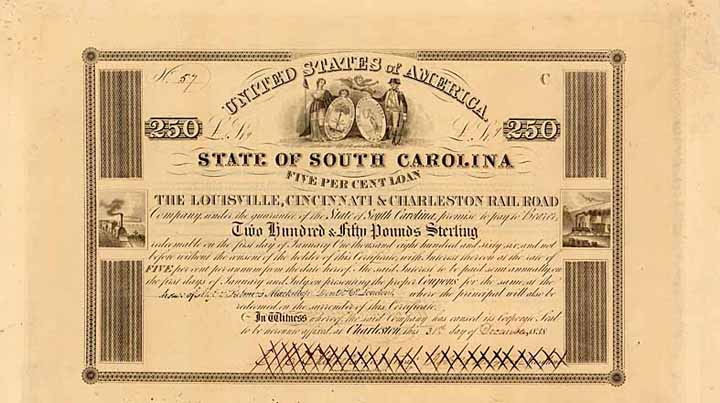 No. 57
C
UNITED STATES of AMERICA
250 £ Stg
£ Stg 250
STATE OF SOUTH CAROLINA
FIVE PER CENT LOAN
THE LOUISVILLE, CINCINNATI & CHARLESTON RAIL ROAD
Company, under the guarantee of the State of South Carolina, promise to pay to Bearer,
Two Hundred & Fifty Pounds Sterling
redeemable on the first day of January One thousand eight hundred and sixty six, and not
before without the consent of the holder of this Certificate, with Interest thereon at the rate of
FIVE per cent per annum from the date hereof. The said Interest to be paid semi annually on
the first days of January and July, on presenting the proper Coupons for the same at the
House of Palmers Mackillop, Dent & Co. London, where the principal will also be
redeemed on the surrender of this Certificate.
In Witness whereof, the said Company has caused its Corporate Seal
to be hereunto affixed, at Charleston, this 31st day of December, 1838